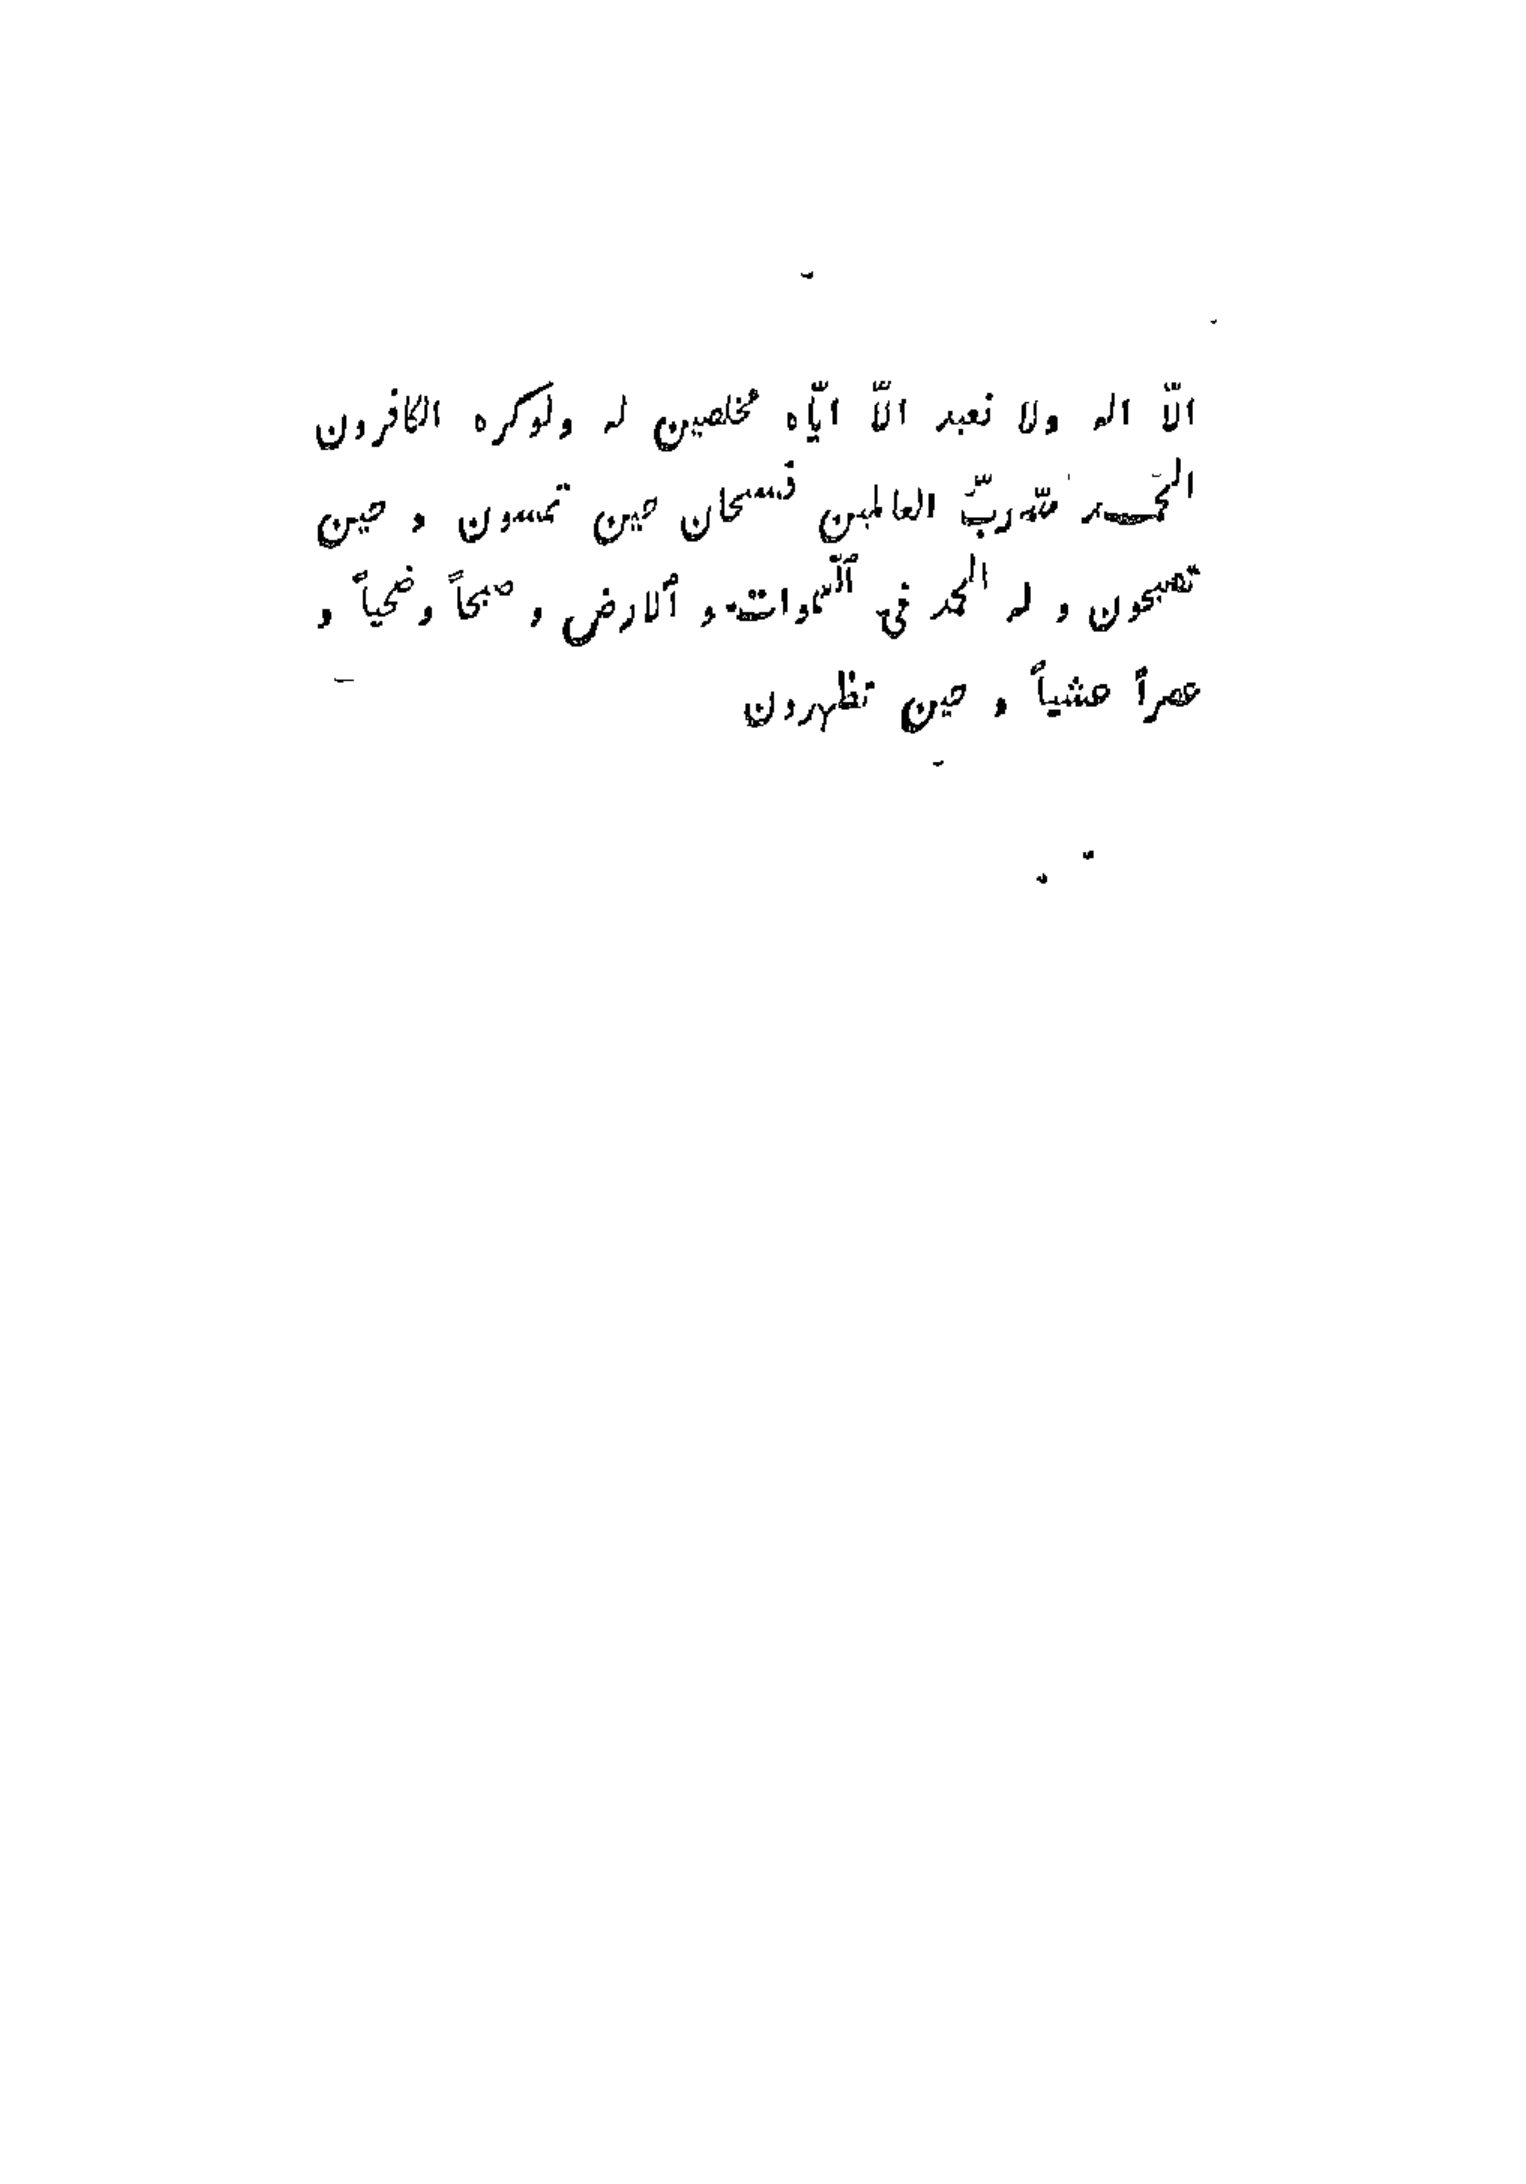 الّا اله ولا نعبد الّا ايّاه مخلصين له ولوكره الكافرون
الحمد لله ربّ العالمين فسبحان حين تمسون و حين
تصبحون و له الحمد في السّموات و ألارض و صبحاً وضحياً و
عصراً عشياً و حين تظهرون